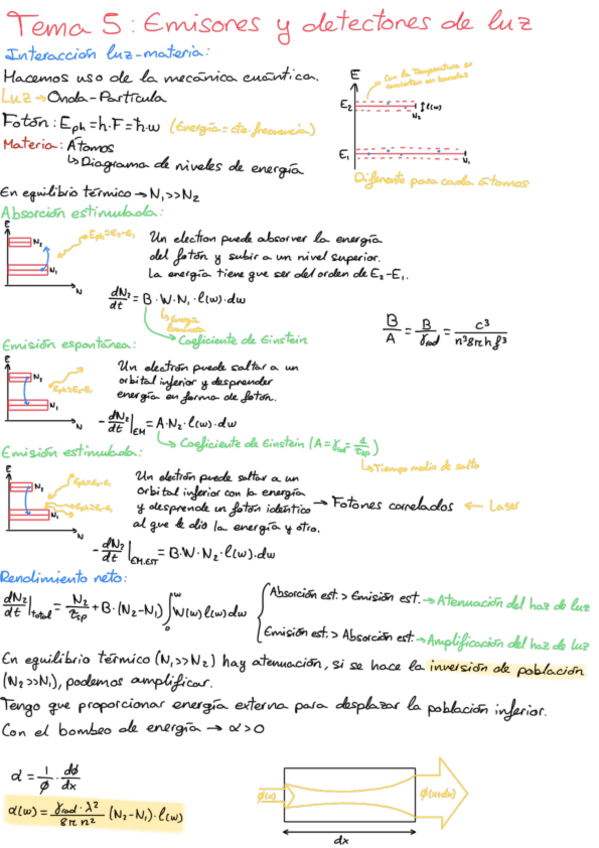 Tema 5: Emisores y detectores de luz
Interacción luz-materia:
Hacemos uso de la mecánica cuántica.
Luz → Onda-Partícula
Fotón: Eph = h·F = ħ·w (Energía = cte·frecuencia)
Materia: Átomos
↳ Diagrama de niveles de energía
E
Con la temperatura se convierten en bandas
E2
N2
l(w)
E1
N1
Diferente para cada átomos
En equilibrio térmico → N1>>N2
Absorción estimulada:
E
N2
Eph=E2-E1
N1
N
Un electron puede absorver la energía
del fotón y subir a un nivel superior.
La energía tiene que ser del orden de E2-E1.
dN2/dt = B·W·N1·l(w)·dw
Energía luminosa
Coeficiente de Einstein
B/A = B/γrad = c³/n³8πhf³
Emisión espontánea:
E
N2
Eph=E2-E1
N1
N
Un electrón puede saltar a un
orbital inferior y desprender
energía en forma de fotón.
-dN2/dt|EM = A·N2·l(w)·dw
↳ Coeficiente de Einstein (A = γrad = 1/τsp)
↳ Tiempo medio de salto
Emisión estimulada:
E
N2
Eph=E2-E1
Eph=E2-E1
N1
N
Un electrón puede saltar a un
orbital inferior con la energía
y desprende un fotón idéntico
al que le dio la energía y otro.
→ Fotones correlados ← Laser
-dN2/dt|EM.EST = B·W·N2·l(w)·dw
Rendimiento neto:
dN2/dt|total = N2/τsp + B·(N2-N1) ∫₀ʷ W(w)l(w)dw
Absorción est. > Emisión est. → Atenuación del haz de luz
Emisión est. > Absorción est. → Amplificación del haz de luz
En equilibrio térmico (N1>>N2) hay atenuación, si se hace la inversión de población
(N2>>N1), podemos amplificar.
Tengo que proporcionar energía externa para desplazar la población inferior.
Con el bombeo de energía → α>0
α = 1/ϕ · dϕ/dx
α(w) = γrad·λ²/8πn² (N2-N1)·l(w)
ϕ(x)
ϕ(x+dx)
dx